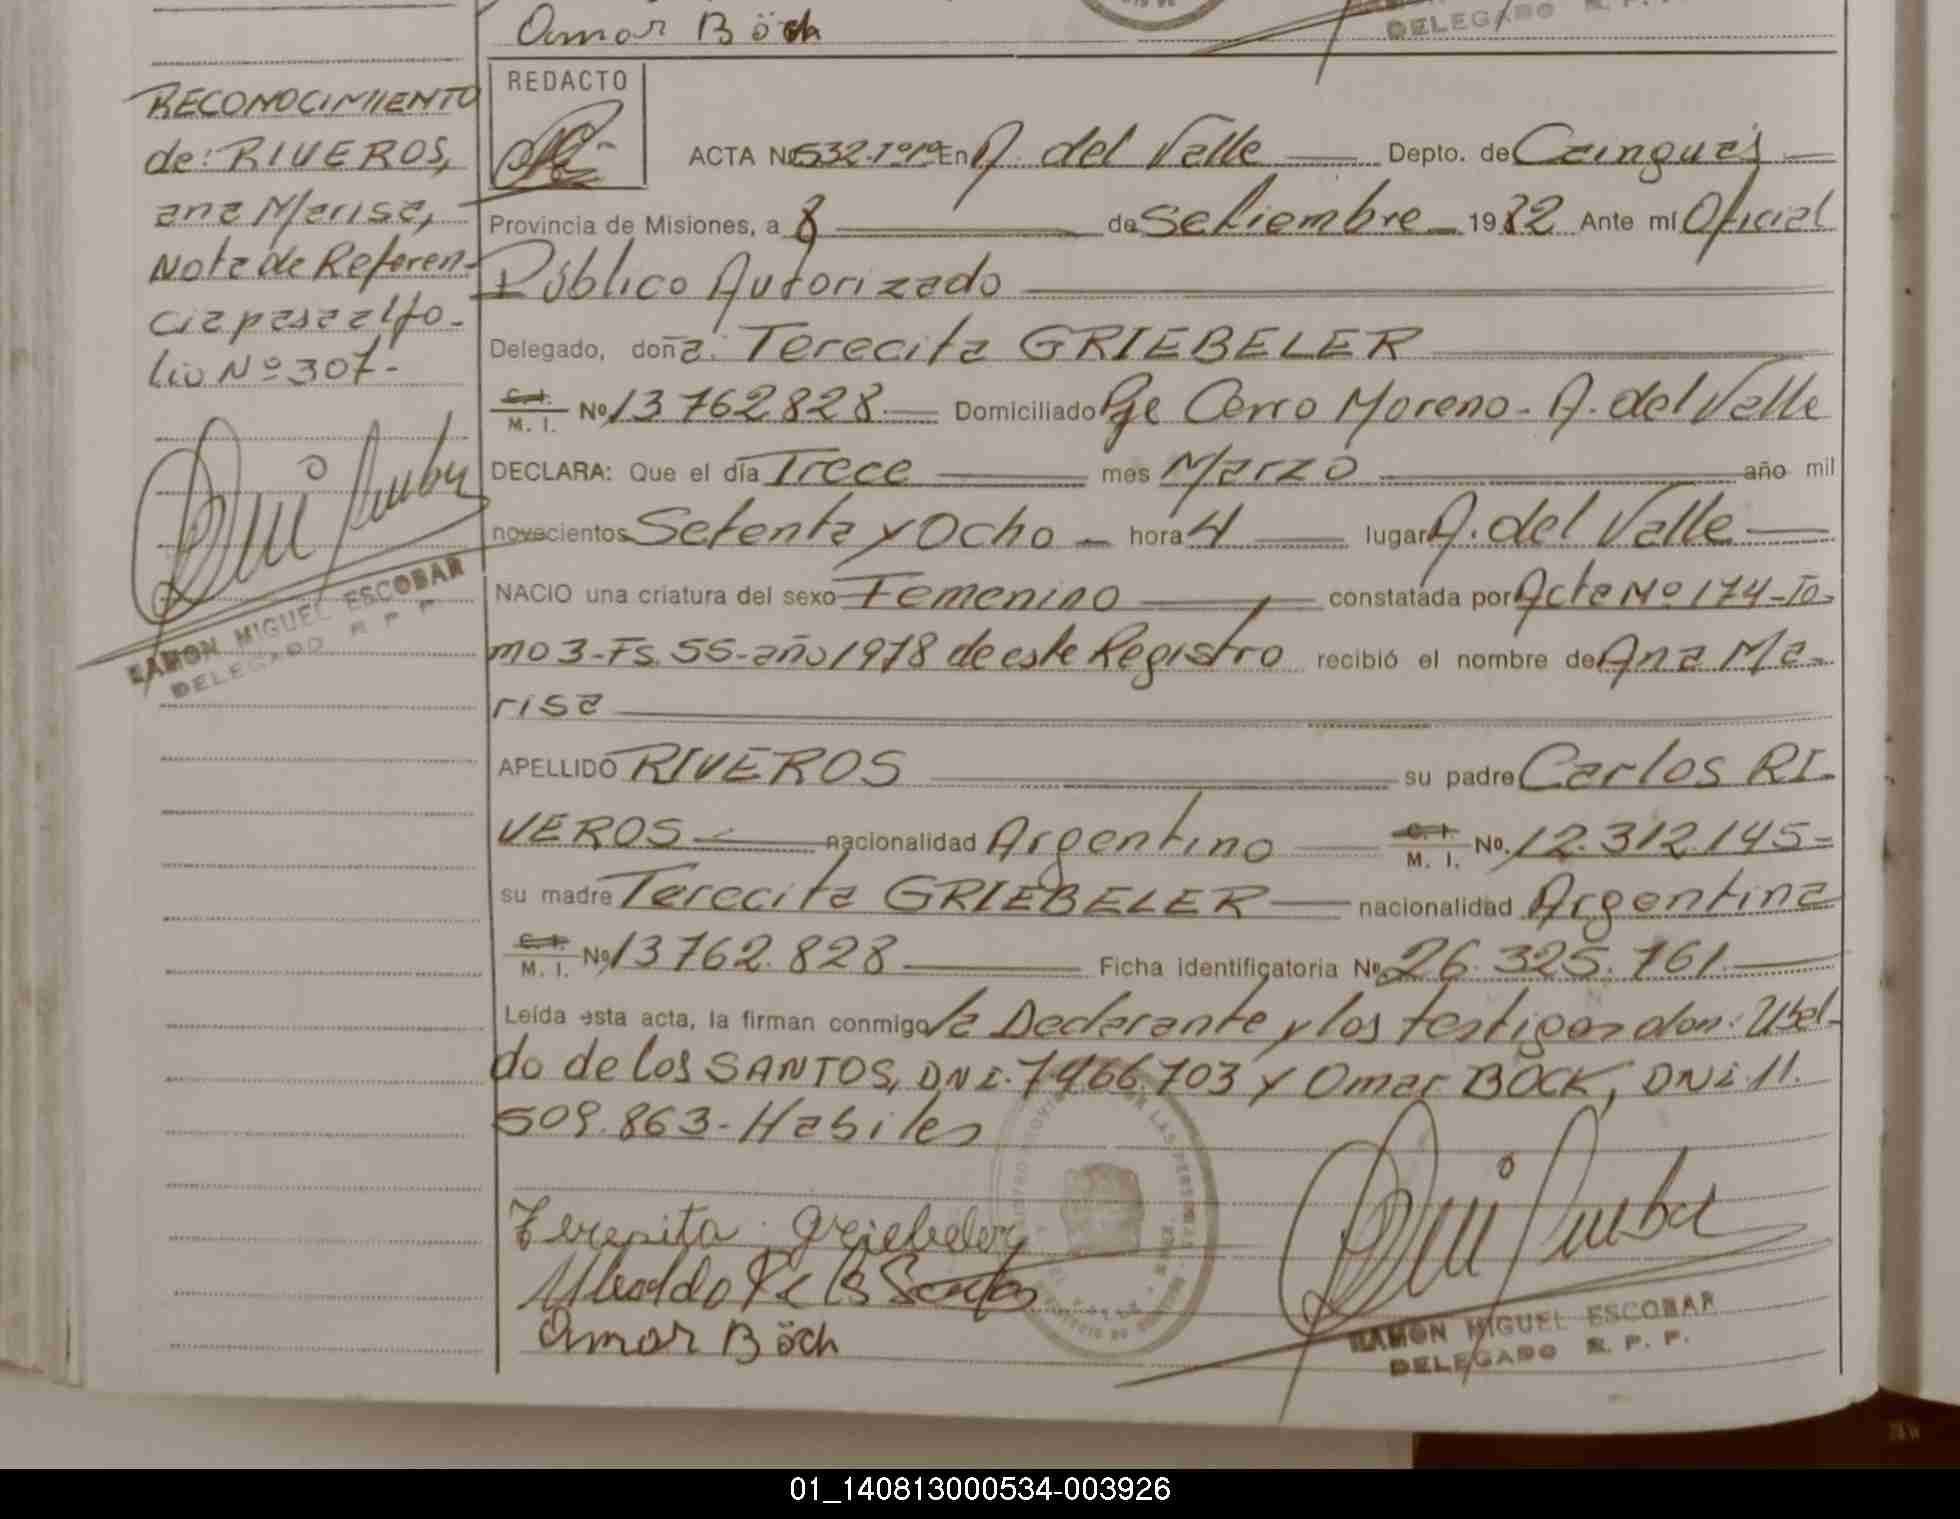 Omar Böch
DELEGADO R. P. P.
RECONOCIMIENTO
de: RIVEROS,
ana Marisa,
Nota de Referen-
cia pasa al fo-
lio Nº 307-
RAMON MIGUEL ESCOBAR
DELEGADO R P P
REDACTO
ACTA Nº 532-Tº1º En A. del Valle Depto. de Cainguas
Provincia de Misiones, a 8 de Setiembre 1982 Ante mí Oficial
Público Autorizado
Delegado, doña: Terecita GRIEBELER
C. I. M. I. Nº 13762.828 Domiciliado Pje Cerro Moreno - A. del Valle
DECLARA: Que el día Trece mes Marzo año mil
novecientos Setenta y Ocho hora 4 lugar A. del Valle
NACIO una criatura del sexo Femenino constatada por Acta Nº 174-To-
mo 3-Fs. 55-año 1978 de este Registro recibió el nombre de Ana Ma-
risa
APELLIDO RIVEROS su padre Carlos RI-
VEROS nacionalidad Argentino C. I. M. I. Nº. 12.312.145-
su madre Terecita GRIEBELER nacionalidad Argentina
C. I. M. I. Nº 13762.828 Ficha identificatoria Nº 26.325.761
Leída esta acta, la firman conmigo la Declarante y los testigos don: Ubal-
do de los SANTOS, DNI. 7.466.703 y Omar BOCK, DNI. 11.
509.863- Habiles
Teresita Griebeler
Ubaldo De los Santos
Omar Böch
RAMON MIGUEL ESCOBAR
DELEGADO R. P. P.
01_140813000534-003926